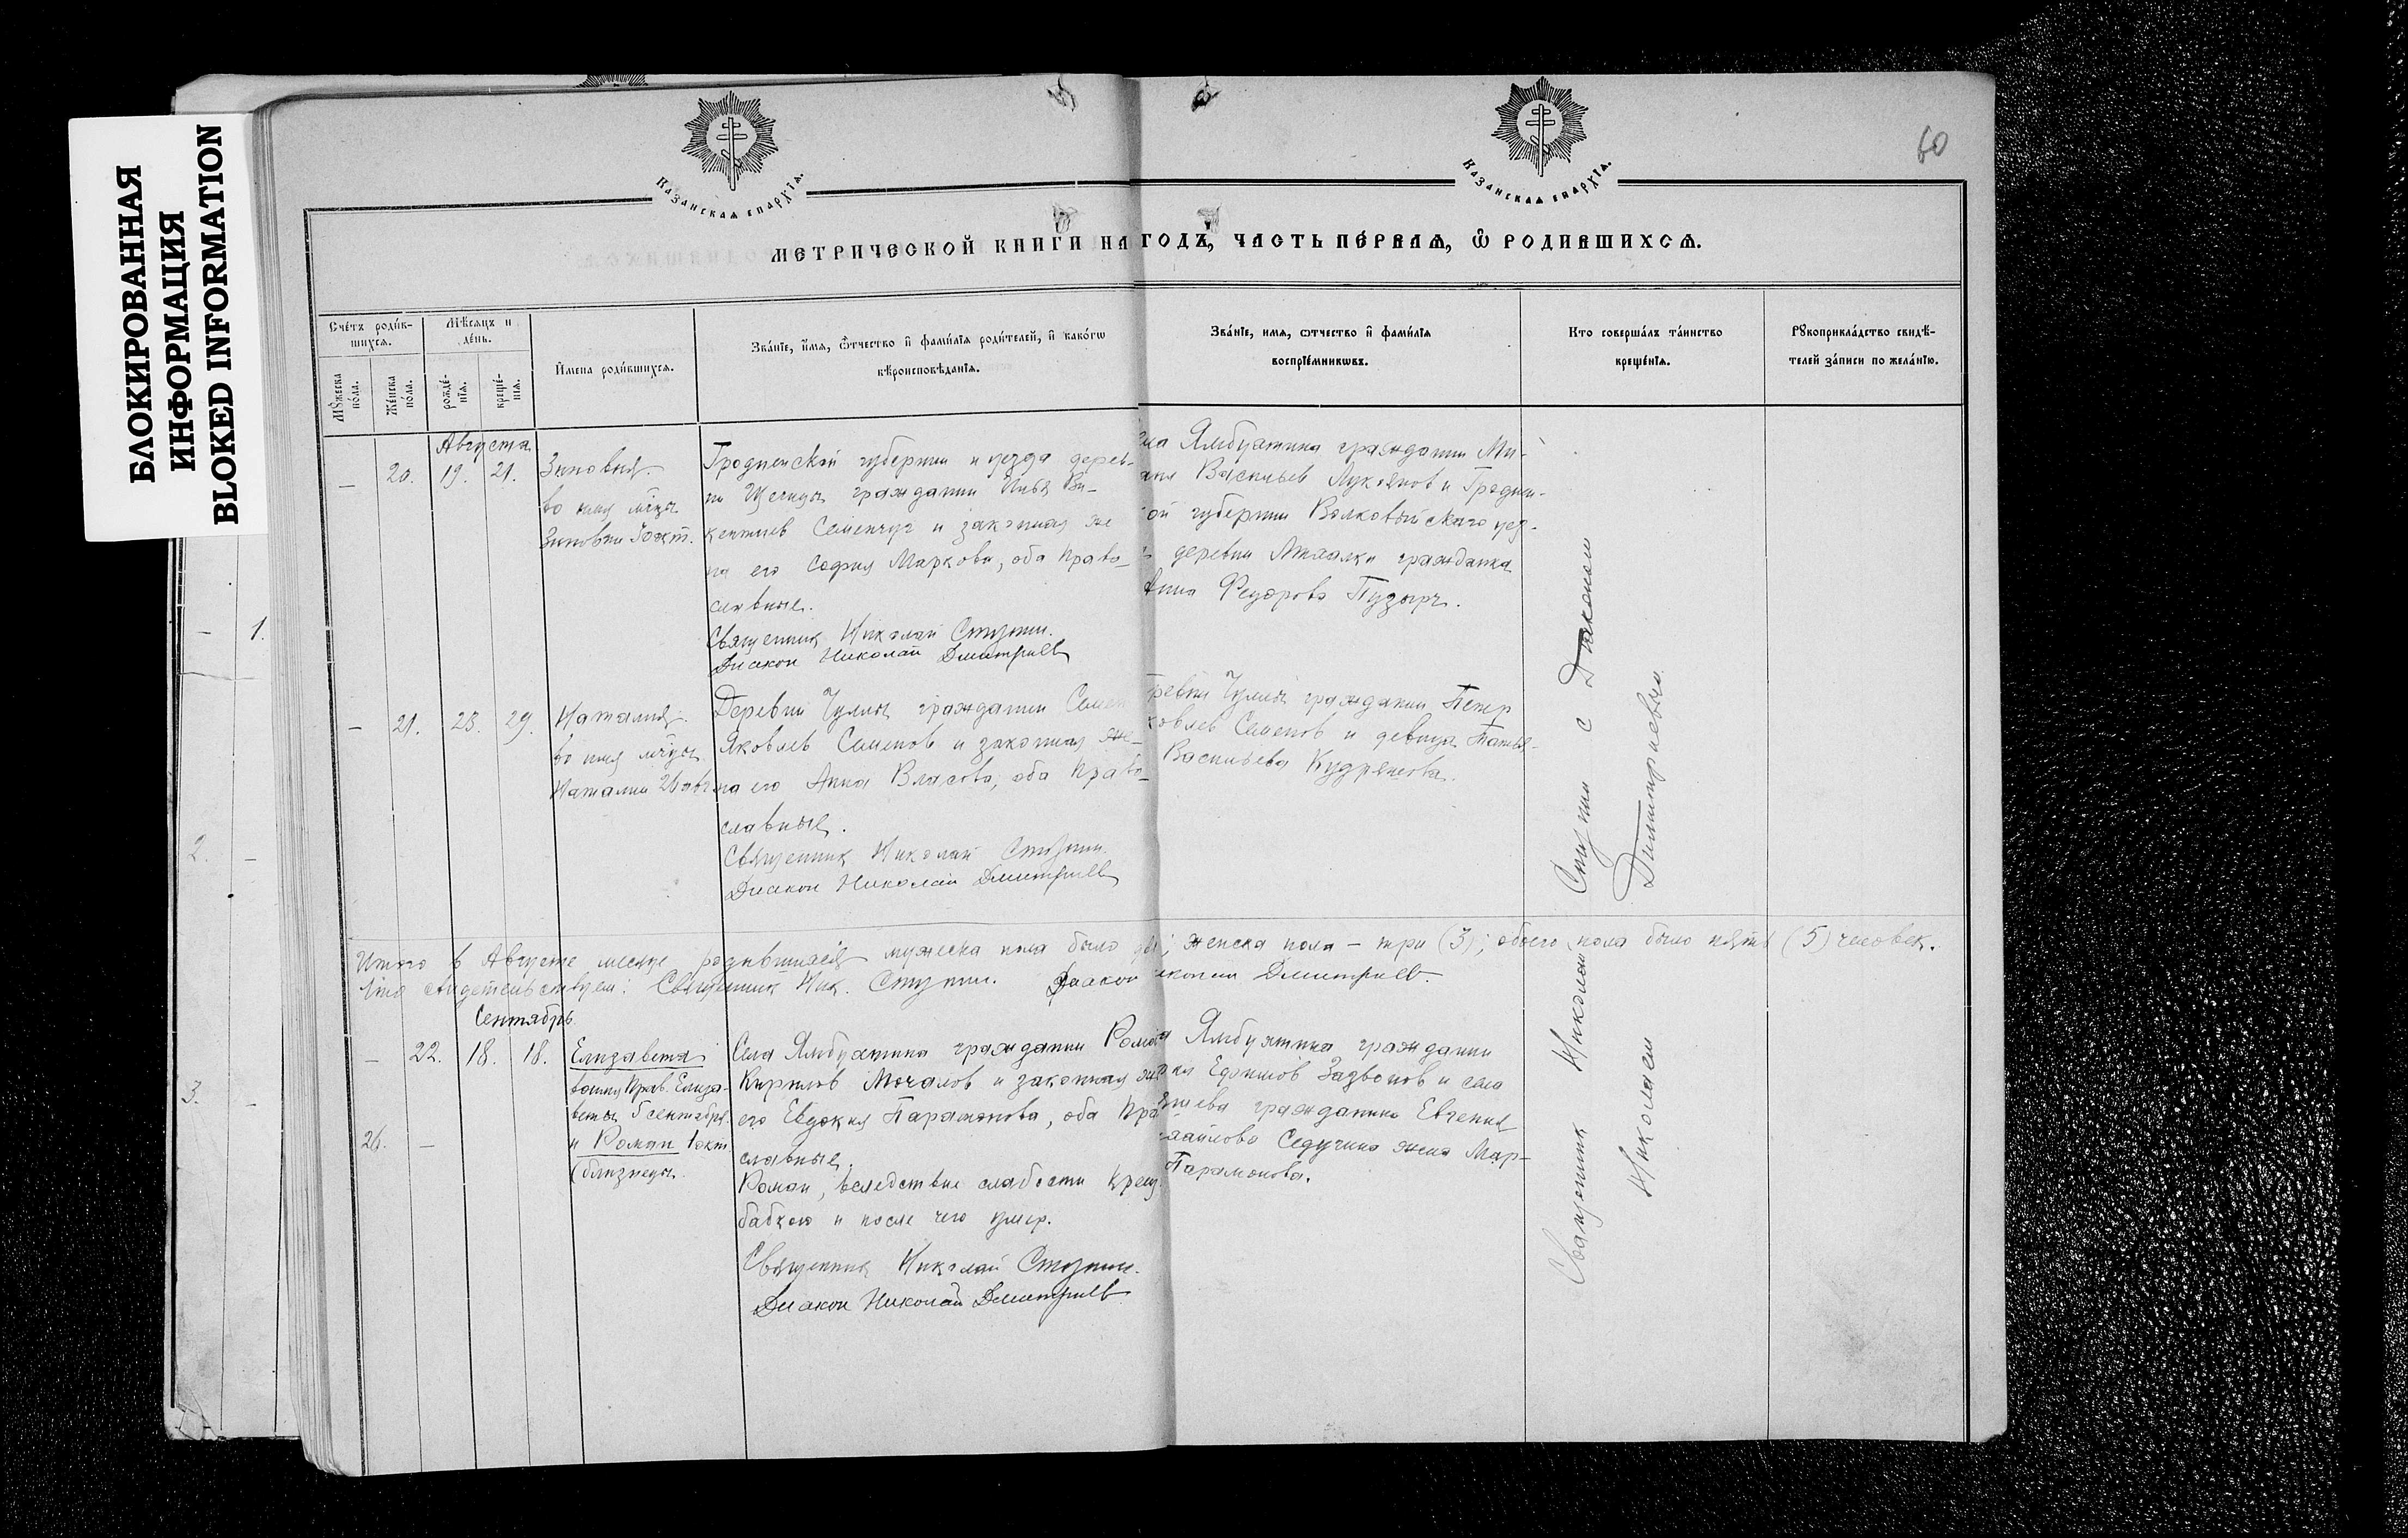 БЛОКИРОВАННАЯ
ИНФОРМАЦИЯ
BLOKED INFORMATION
60
Казанская епархїя.
Казанская епархїя.
МЕТРИЧЕСКОЙ КНИГИ НА ГОДЪ, ЧАСТЬ ПЕ́РВАѦ, Ѡ РОДИВШИХСѦ.
Сче́тъ роди́в-
шихсѧ.
Мѣ́сѧцъ и
де́нь.
Мꙋ́жеска
по́ла.
Же́нска
по́ла.
рожде́-
нїѧ.
креще́-
нїѧ.
И҆мена роди́вшихсѧ.
Зва́нїе, и҆́мѧ, ѻ҆́тчество и҆ фами́лїѧ роди́телей, и҆ како́гѡ
вѣроисповѣ́данїѧ.
Зва́нїе, имѧ, ѻтчество и҆ фами́лїѧ
воспрїе́мникѡвъ.
Кто соверша́лъ та́инство
креще́нїѧ.
Рꙋкоприкла́дство свидѣ́-
телей за́писи по жела́нїю.
Августа
— 20. 19. 21.
Зиновия.
во имя мчцы
Зиновии
Гродненской губернии и уезда дерев-
ни гражданин Илья Ви-
кентиев Семенчук и законная же
на его София Маркова, оба право-
славные.
Священник Николай Ступин.
Диакон Николай Дмитриев
ела Ямбухтина гражданин Ми-
Васильев Лукоянов и Гроднен-
ой губернии Волковыйскаго уез-
деревни гражданка
Анна Федорова Пузырь.
— 21. 23. 29.
Наталия.
во имя мчцы
Наталии 26 авг
Деревни Чулпы гражданин Семен
Яковлев Семенов и законная же-
на его Анна Власова, оба право-
славные.
Священник Николай Ступин.
Диакон Николай Дмитриев
ревни Чулпы гражданин Петр
ковлев Семенов и девица Татья-
Васильева Кудряшова.
Итого в Августе месяце родившихся мужеска пола было дв; женска пола – три (3); обоего пола было пять (5) человек.
Что свидетельствуем: Священник Ник. Ступин. Диакон иколай Дмитриев.
Сентябрь
— 22. 18. 18.
Елизавета
во имя Прав. Елиза-
веты 5 сентября.
26. — и Роман 1 окт
(близнецы.
Села Ямбухтина гражданин Роман
Кирилов Мочалов и законная же
его Евдокия Парамонова, оба пра
славные.
Роман, вследствие слабости крещ
бабкою и после чего умер.
Священник Николай Ступин.
Диакон Николай Дмитриев
Ямбухтина гражданин
Ефимов Зазвонов и села
гражданина Евгения
хайлова Седучина жена Мар-
Парамонова.
Священник Николай Ступин с Диаконом
Николаем Димитриевым.
1.
2. —
3. —